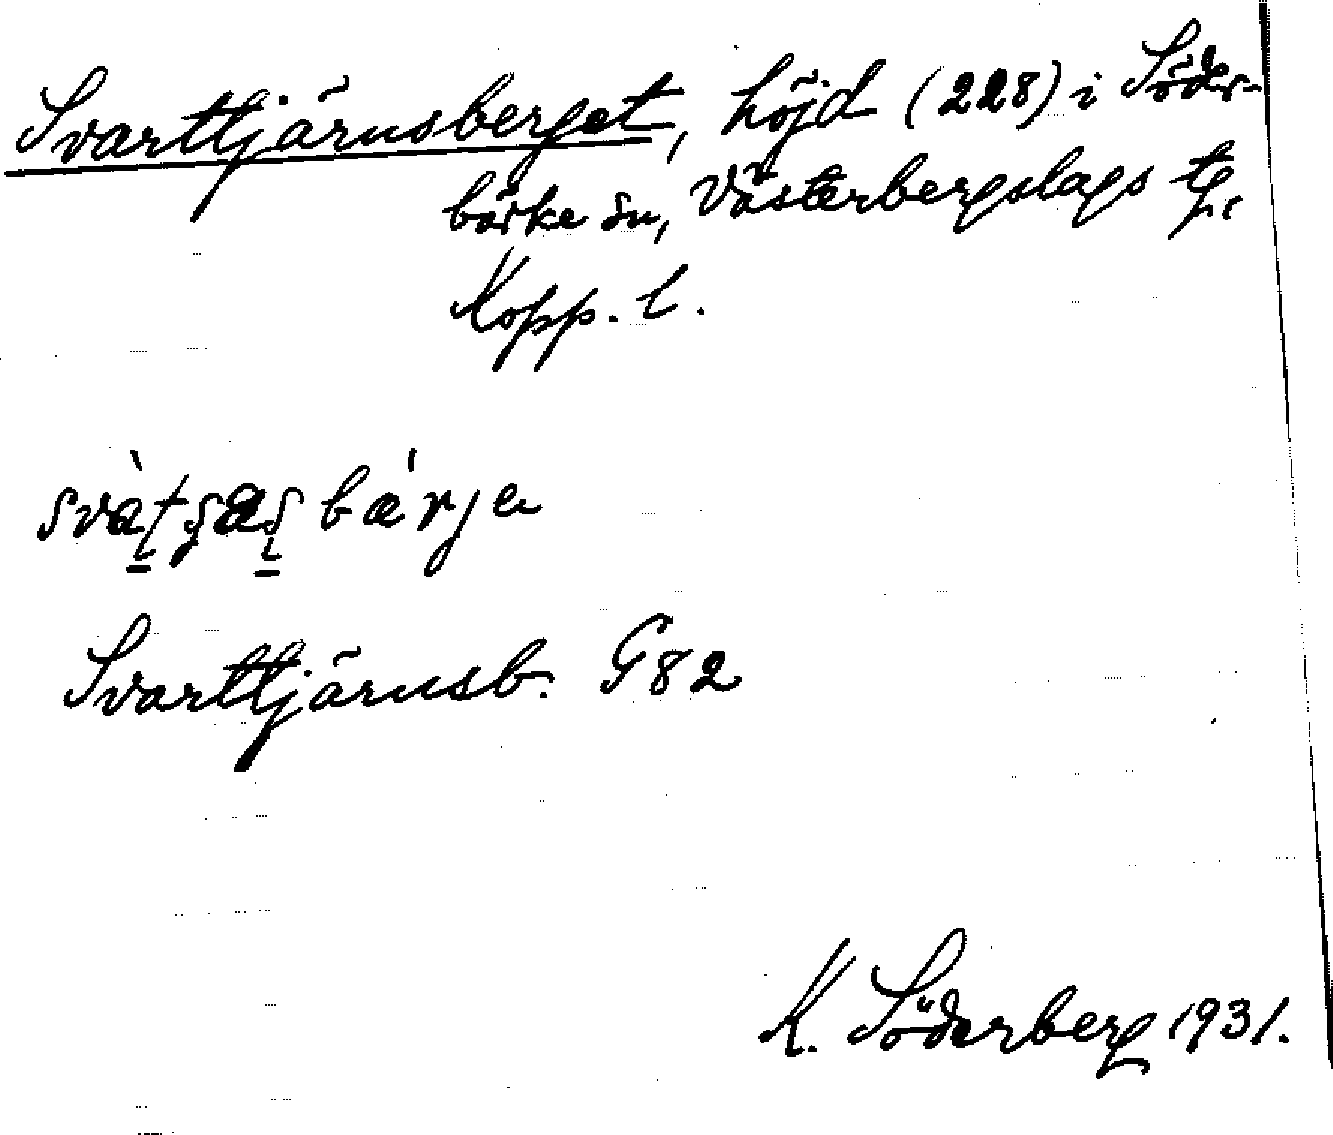 Svarttjärnsberget, höjd (228) i Söder-
bärke sn, Västerbergslags tg,
Kopp. l.
Svarttjärnsb. G82
K. Söderberg 1931.